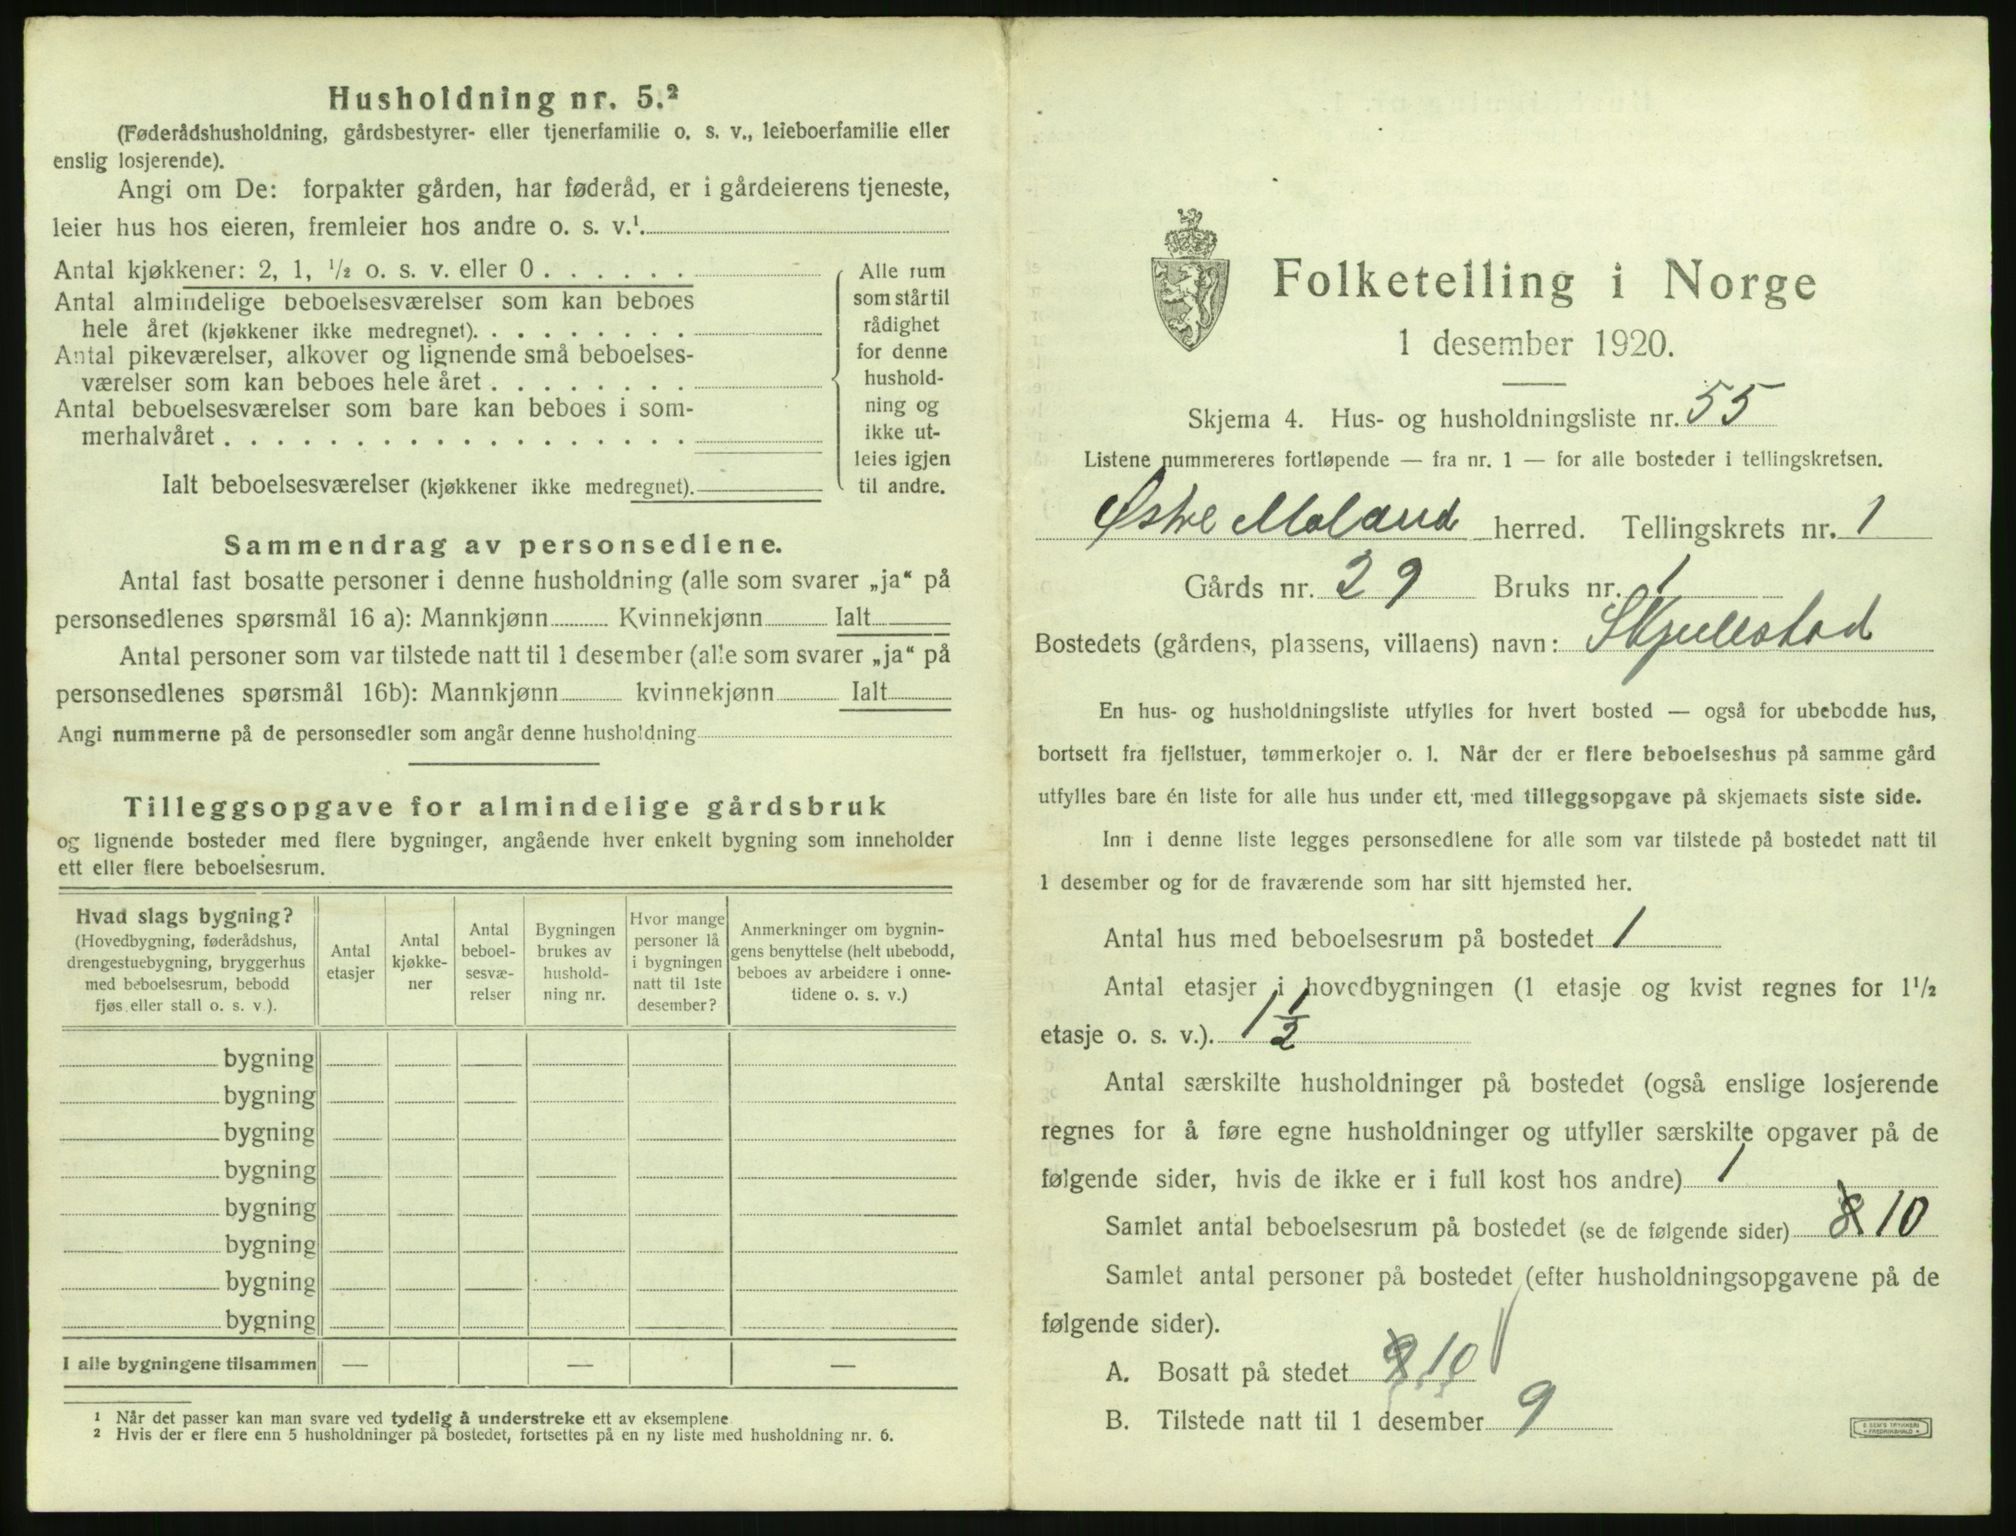 Husholdning nr. 5.²
(Føderådshusholdning, gårdsbestyrer- eller tjenerfamilie o. s. v., leieboerfamilie eller
enslig losjerende).
Angi om De: forpakter gården, har føderåd, er i gårdeierens tjeneste,
leier hus hos eieren, fremleier hos andre o. s. v.¹.
Antal kjøkkener: 2, 1, ½ o. s. v. eller 0 . . . . . .
Antal almindelige beboelsesværelser som kan beboes
hele året (kjøkkener ikke medregnet). . . . . . . . .
Antal pikeværelser, alkover og lignende små beboelses-
værelser som kan beboes hele året . . . . . . . . .
Antal beboelsesværelser som bare kan beboes i som-
merhalvåret . . . . . . . . . . . . . . . . . . . .
Ialt beboelsesværelser (kjøkkener ikke medregnet).
Alle rum
som står til
rådighet
for denne
hushold-
ning og
ikke ut-
leies igjen
til andre.
Sammendrag av personsedlene.
Antal fast bosatte personer i denne husholdning (alle som svarer „ja“ på
personsedlenes spørsmål 16 a): Mannkjønn Kvinnekjønn Ialt
Antal personer som var tilstede natt til 1 desember (alle som svarer „ja“ på
personsedlenes spørsmål 16b): Mannkjønn kvinnekjønn Ialt
Angi nummerne på de personsedler som angår denne husholdning
Tilleggsopgave for almindelige gårdsbruk
og lignende bosteder med flere bygninger, angående hver enkelt bygning som inneholder
ett eller flere beboelsesrum.
Hvad slags bygning?
(Hovedbygning, føderådshus,
drengestuebygning, bryggerhus
med beboelsesrum, bebodd
fjøs eller stall o. s. v.).
Antal
etasjer
Antal
kjøkke-
ner
Antal
beboel-
sesvæ-
relser
Bygningen
brukes av
hushold-
ning nr.
Hvor mange
personer lå
i bygningen
natt til 1ste
desember?
Anmerkninger om bygnin-
gens benyttelse (helt ubebodd,
beboes av arbeidere i onne-
tidene o. s. v.)
bygning
bygning
bygning
bygning
bygning
bygning
bygning
bygning
I alle bygningene tilsammen — — —
¹ Når det passer kan man svare ved tydelig å understreke ett av eksemplene
² Hvis der er flere enn 5 husholdninger på bostedet, fortsettes på en ny liste med husholdning nr. 6.
Folketelling i Norge
1 desember 1920.
Skjema 4. Hus- og husholdningsliste nr. 55
Listene nummereres fortløpende — fra nr. 1 — for alle bosteder i tellingskretsen.
Østre Moland herred. Tellingskrets nr. 1
Gårds nr. 29 Bruks nr. 1
Bostedets (gårdens, plassens, villaens) navn: Skjullestad
En hus- og husholdningsliste utfylles for hvert bosted — også for ubebodde hus,
bortsett fra fjellstuer, tømmerkojer o. l. Når der er flere beboelseshus på samme gård
utfylles bare én liste for alle hus under ett, med tilleggsopgave på skjemaets siste side.
Inn i denne liste legges personsedlene for alle som var tilstede på bostedet natt til
1 desember og for de fraværende som har sitt hjemsted her.
Antal hus med beboelsesrum på bostedet 1
Antal etasjer i hovedbygningen (1 etasje og kvist regnes for 1½
etasje o. s. v.). 1 ½
Antal særskilte husholdninger på bostedet (også enslige losjerende
regnes for å føre egne husholdninger og utfyller særskilte opgaver på de
følgende sider, hvis de ikke er i full kost hos andre) 1
Samlet antal beboelsesrum på bostedet (se de følgende sider) 8 10
Samlet antal personer på bostedet (efter husholdningsopgavene på de
følgende sider).
A. Bosatt på stedet 9 10
B. Tilstede natt til 1 desember 9
E. SEM'S TRYKKERI
FREDRIKSHALD